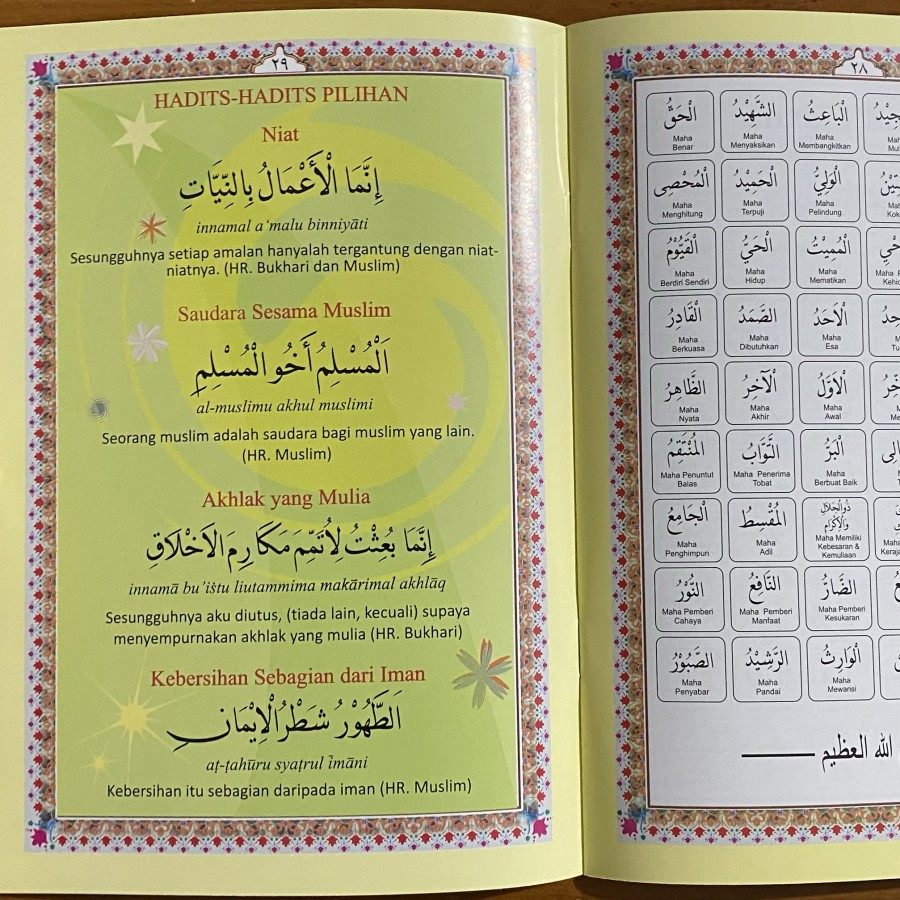 ٢٩
HADITS-HADITS PILIHAN
Niat
إِنَّمَا الْأَعْمَالُ بِالنِّيَّاتِ
innamal a‘malu binniyāti
Sesungguhnya setiap amalan hanyalah tergantung dengan niat-
niatnya. (HR. Bukhari dan Muslim)
Saudara Sesama Muslim
اَلْمُسْلِمُ أَخُو الْمُسْلِمِ
al-muslimu akhul muslimi
Seorang muslim adalah saudara bagi muslim yang lain.
(HR. Muslim)
Akhlak yang Mulia
إِنَّمَا بُعِثْتُ لِأُتَمِّمَ مَكَارِمَ الْاَخْلَاقِ
innamā bu’iṡtu liutammima makārimal akhlāq
Sesungguhnya aku diutus, (tiada lain, kecuali) supaya
menyempurnakan akhlak yang mulia (HR. Bukhari)
Kebersihan Sebagian dari Iman
اَلطَّهُوْرُ شَطْرُ الْاِيْمَانِ
aṭ-ṭahūru syaṭrul īmāni
Kebersihan itu sebagian daripada iman (HR. Muslim)
٢٨
الْبَاعِثُ
Maha
Membangkitkan
الشَّهِيْدُ
Maha
Menyaksikan
الْحَقُّ
Maha
Benar
الْوَلِيُّ
Maha
Pelindung
الْحَمِيْدُ
Maha
Terpuji
الْمُحْصِى
Maha
Menghitung
الْمُمِيْتُ
Maha
Mematikan
الْحَيُّ
Maha
Hidup
الْقَيُّوْمُ
Maha
Berdiri Sendiri
الْاَحَدُ
Maha
Esa
الصَّمَدُ
Maha
Dibutuhkan
الْقَادِرُ
Maha
Berkuasa
الْاَوَّلُ
Maha
Awal
الْآخِرُ
Maha
Akhir
الظَّاهِرُ
Maha
Nyata
الْبَرُّ
Maha
Berbuat Baik
التَّوَّابُ
Maha Penerima
Tobat
الْمُنْتَقِمُ
Maha Penuntut
Balas
ذُوالْجَلَالِ
وَالْاِكْرَامِ
Maha Memiliki
Kebesaran &
Kemuliaan
الْمُقْسِطُ
Maha
Adil
الْجَامِعُ
Maha
Penghimpun
الضَّارُّ
Maha Pemberi
Kesukaran
النَّافِعُ
Maha Pemberi
Manfaat
النُّوْرُ
Maha Pemberi
Cahaya
الْوَارِثُ
Maha
Mewarisi
الرَّشِيْدُ
Maha
Pandai
الصَّبُوْرُ
Maha
Penyabar
الله العظيم